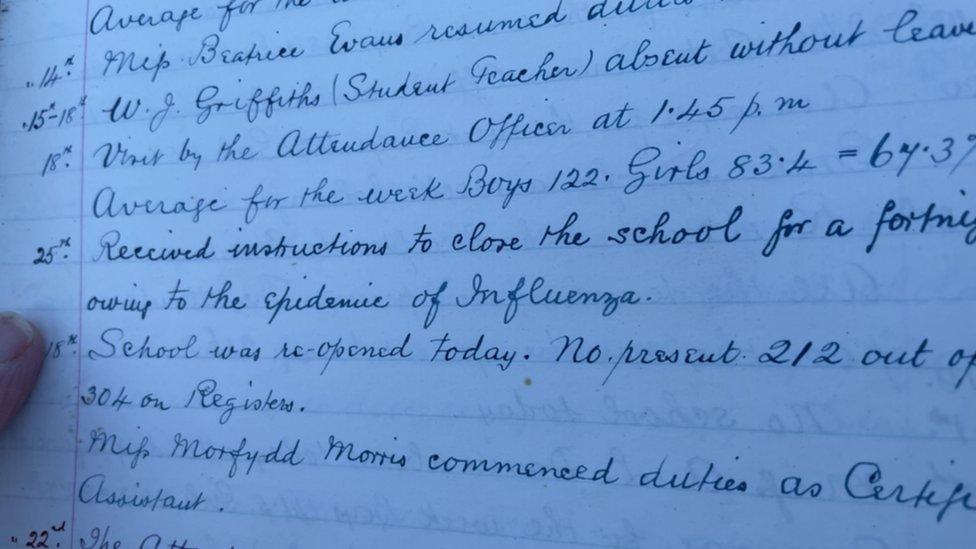 Average for the
" 14th. Miss Beatrice Evans resumed duties
" 15th-18th W. J. Griffiths (Student Teacher) absent without leave
18th. Visit by the Attendance Officer at 1.45 p.m
Average for the week Boys 122. Girls 83.4 = 67.3%
25th. Received instructions to close the school for a fortnig
owing to the epidemic of Influenza.
18th. School was re-opened today. No. present. 212 out of
304 on Registers.
Miss Morfydd Morris commenced duties as Certifi
Assistant.
" 22nd. The